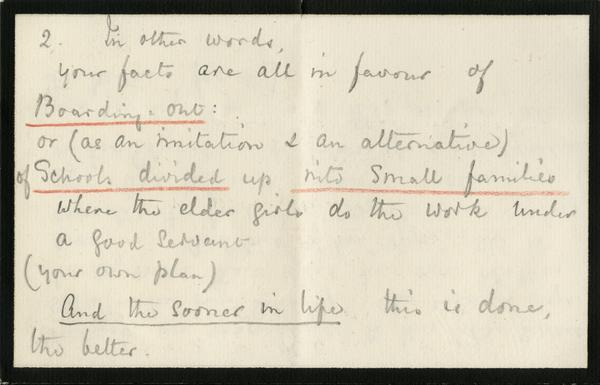 2. In other words,
your facts are all in favour of
Boarding-out:
or (as an imitation & an alternative)
of Schools divided up into Small families
where the elder girls do the work under
a good Servant
(your own plan)
And the sooner in life this is done,
the better.